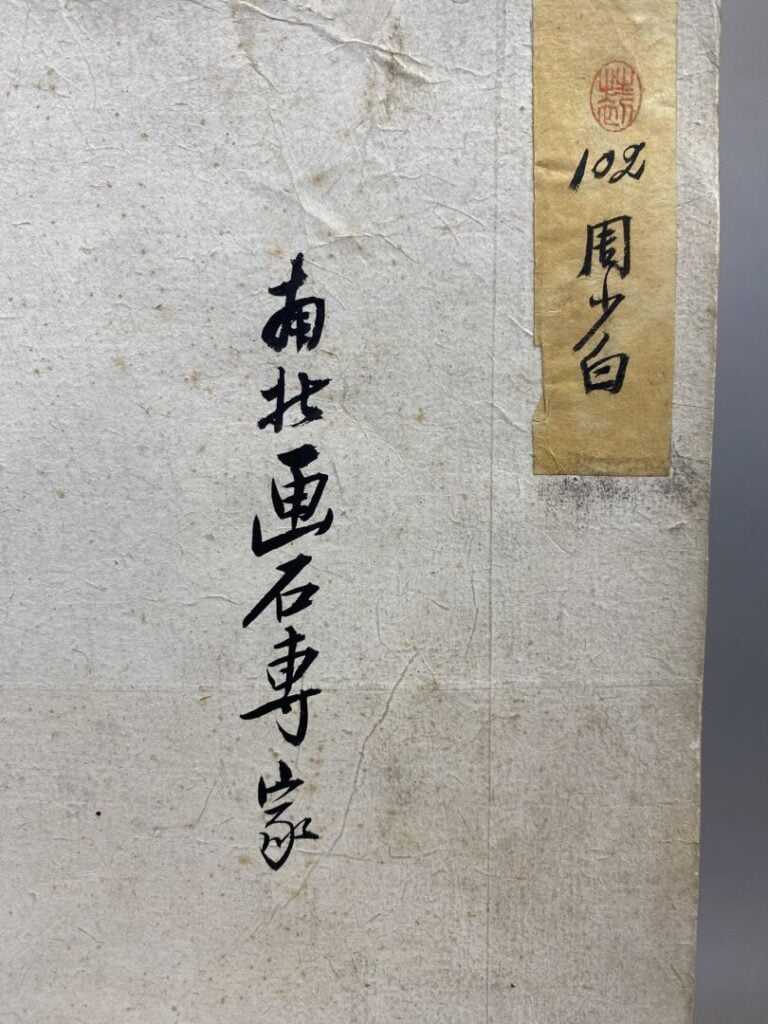 102
周少白
南北画石專家